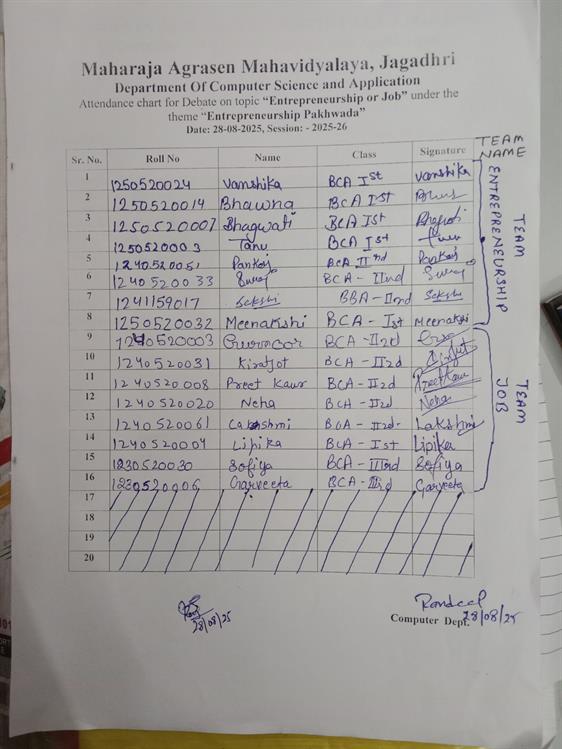 Maharaja Agrasen Mahavidyalaya, Jagadhri
Department Of Computer Science and Application
Attendance chart for Debate on topic “Entrepreneurship or Job” under the
theme “Entrepreneurship Pakhwada”
Date: 28-08-2025, Session: - 2025-26
Sr. No. Roll No Name Class Signature TEAM NAME
1 1250520024 Vanshika BCA Ist Vanshika
2 1250520014 Bhawna BCA Ist
3 1250520007 Bhagwati BCA Ist
4 1250520003 Tanu BCA Ist Tanu
5 1240520051 Pankaj BCA IInd Pankaj
6 1240520033 Suraj BCA - IInd Suraj
7 1241159017 Sakshi BBA - IInd Sakshi
8 1250520032 Meenakshi BCA - Ist Meenakshi
TEAM ENTREPRENEURSHIP
9 1240520003 Gurnoor BCA - II2d
10 1240520031 Kiratjot BCA - II2d Kiratjot
11 1240520008 Preet Kaur BCA - II2d Preet Kaur
12 1240520020 Neha BCA - II2d Neha
13 1240520061 Lakshmi BCA - II2d Lakshmi
14 1240520004 Lipika BCA - Ist Lipika
15 1230520030 Sofiya BCA - IIIrd Sofiya
16 1230520006 Garveeta BCA - IIIrd Garveeta
TEAM JOB
17
18
19
20
28/08/25
28/08/25
Computer Dept.